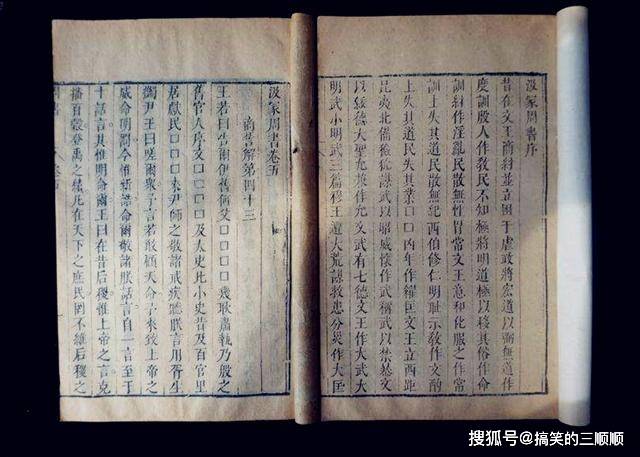 汲冢周書序
昔在文王商紂並立困于虐政將宏道以弼無道作
度訓殷人作敎民不知極將明道極以移其俗作命
訓紂作淫亂民散無性冐常文王惠和化服之作常
訓上失其道民散無紀西伯修仁明耻示敎作文酌
上失其道民失其業□□凶年作糴匡文王立西距
昆夷北備獫狁謀武以昭威懷作武稱武以禁暴文
以綏德大聖允兼作允文武有七德文王作大武大
明武小明武三篇穆王遭大荒謀救患分災作大匡
汲冢周書卷五
商誓解第四十三
王若曰告爾伊舊何父□□□□幾耿肅執乃殷之
舊官人序文□□□□及太史比小史昔及百官里
居獻民□□□來尹師之敬諸戒疾聽朕言用胥生
蠲尹王曰嗟爾衆予言若敢顧天命予來致上帝之
威命明罰今惟新誥命爾敬諸朕話言自一言至于
十話言其惟明命爾王曰在昔后稷惟上帝之言克
播百穀登禹之績凡在天下之庶民罔不維后稷之
搜狐号@搞笑的三顺顺